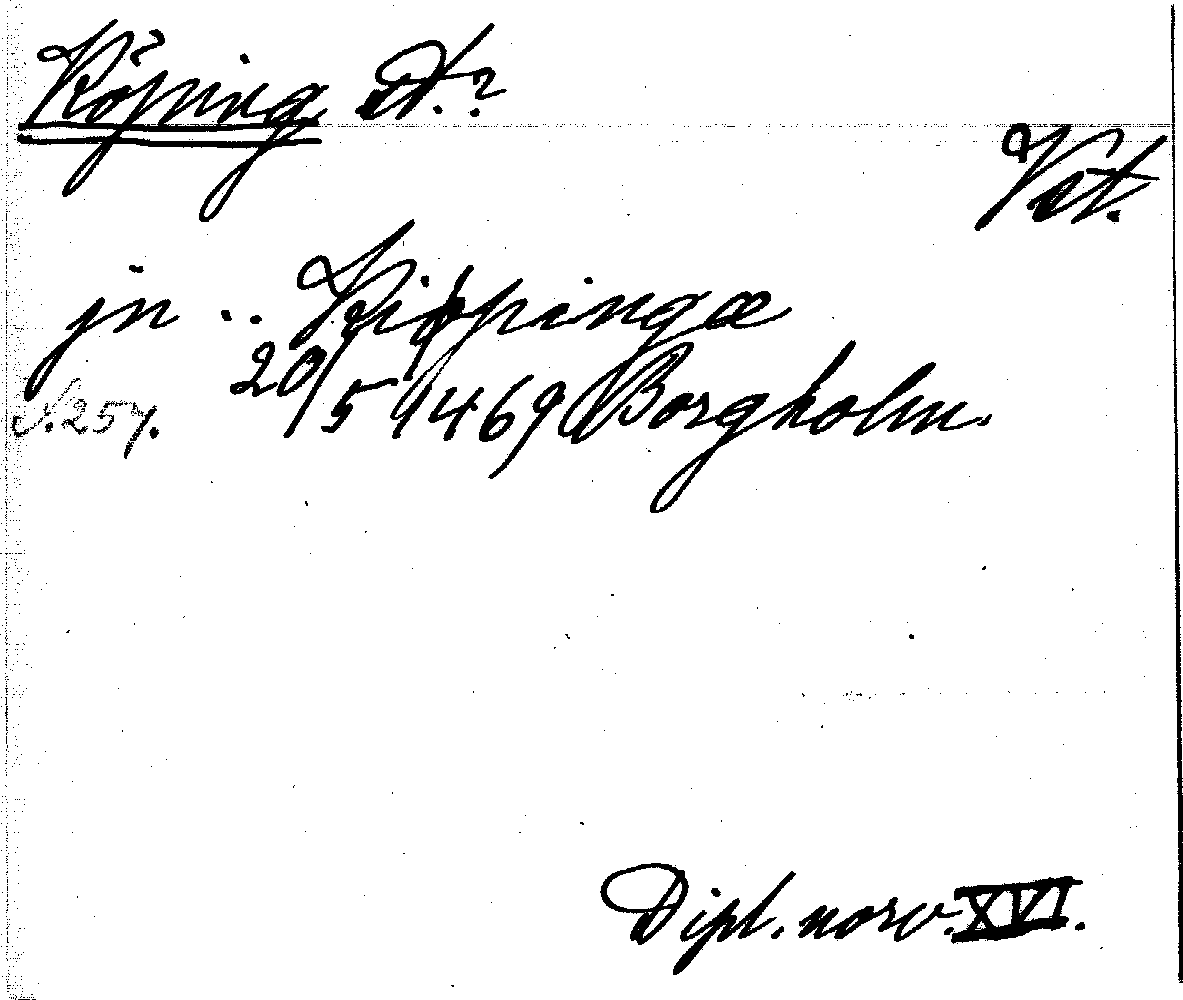 Köping st.?
Vst.
jn .. Kiøpingæ
S. 257. 20/5 1469 Borgholm.
Dipl. norv. XVI.